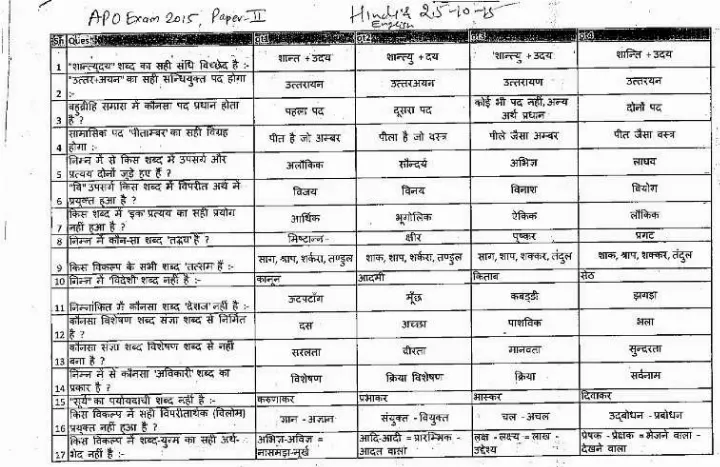 APO Exam 2015, Paper-II Hindi & English 25-10-15
Sn Ques
1 "शान्त्युदय" शब्द का सही संधि विच्छेद है :- शान्त + उदय शान्त्यु + दय शान्त्यु + उदय शान्ति + उदय
"उत्तर+अयन" का सही सन्धियुक्त पद होगा उत्तरायन उत्तरअयन उत्तरायण उत्तरयन
2 :-
बहुव्रीहि समास में कौनसा पद प्रधान होता पहला पद दूसरा पद कोई भी पद नहीं, अन्य दोनों पद
3 है ? अर्थ प्रधान
सामासिक पद 'पीताम्बर' का सही विग्रह पीत है जो अम्बर पीला है जो वस्त्र पीले जैसा अम्बर पीत जैसा वस्त्र
4 होगा :-
निम्न में से किस शब्द में उपसर्ग और अलौकिक सौन्दर्य अभिज्ञ लाघव
5 प्रत्यय दोनों जुड़े हुए हैं ?
"वि" उपसर्ग किस शब्द में विपरीत अर्थ में विजय विनय विनाश वियोग
6 प्रयुक्त हुआ है ?
किस शब्द में 'इक' प्रत्यय का सही प्रयोग आर्थिक भूगोलिक ऐकिक लौकिक
7 नहीं हुआ है ?
8 निम्न में कौन-सा शब्द 'तद्भव' है ? मिष्टान्न क्षीर पुष्कर प्रगट
9 किस विकल्प के सभी शब्द 'तत्सम' हैं :- साग, श्राप, शर्करा, तण्डुल शाक, शाप, शर्करा, तण्डुल साग, शाप, शक्कर, तंदुल शाक, श्राप, शक्कर, तंदुल
10 निम्न में 'विदेशी' शब्द नहीं है :- कानून आदमी किताब सेठ
11 निम्नांकित में कौनसा शब्द 'देशज' नहीं है :- ऊटपटाँग मूँछ कबड्डी झगड़ा
कौनसा विशेषण शब्द संज्ञा शब्द से निर्मित दस पाशविक भला
12 है ?
कौनसा संज्ञा शब्द विशेषण शब्द से नहीं सरलता वीरता मानवता सुन्दरता
13 बना है ?
निम्न में से कौनसा 'अविकारी' शब्द का विशेषण क्रिया विशेषण क्रिया सर्वनाम
14 प्रकार है ?
15 "सूर्य" का पर्यायवाची शब्द नहीं है :- करुणाकर प्रभाकर भास्कर दिवाकर
किस विकल्प में सही विपरीतार्थक (विलोम) ज्ञान - अज्ञान संयुक्त - वियुक्त चल - अचल उद्बोधन - प्रबोधन
16 प्रयुक्त नहीं हुआ है ?
किस विकल्प में शब्द-युग्म का सही अर्थ- अभिज्ञ-अविज्ञ = आदि-आदी = प्रारम्भिक - लक्ष - लक्ष्य = लाख - प्रेषक - प्रेक्षक = भेजने वाला -
17 भेद नहीं है :- नासमझ-मूर्ख आदत वाला उद्देश्य देखने वाला